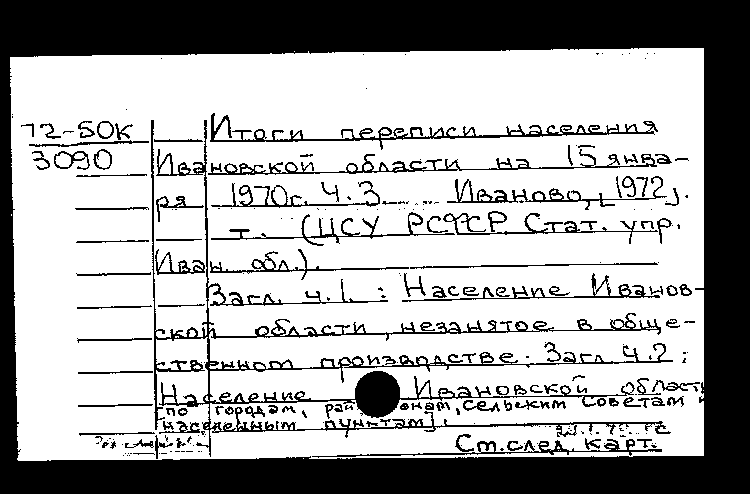 72-50к
3090
Итоги переписи населения
Ивановской области на 15 янва-
ря 1970г. Ч.3. Иваново, [1972].
т. (ЦСУ РСФСР. Стат. упр.
Иван. обл.).
Загл. ч.1. : Население Иванов-
ской области, незанятое в обще-
ственном производстве; Загл ч.2 :
Население Ивановской област
[по городам, рай онам, сельским советам и
населенным пунктам].
См.след. карт.